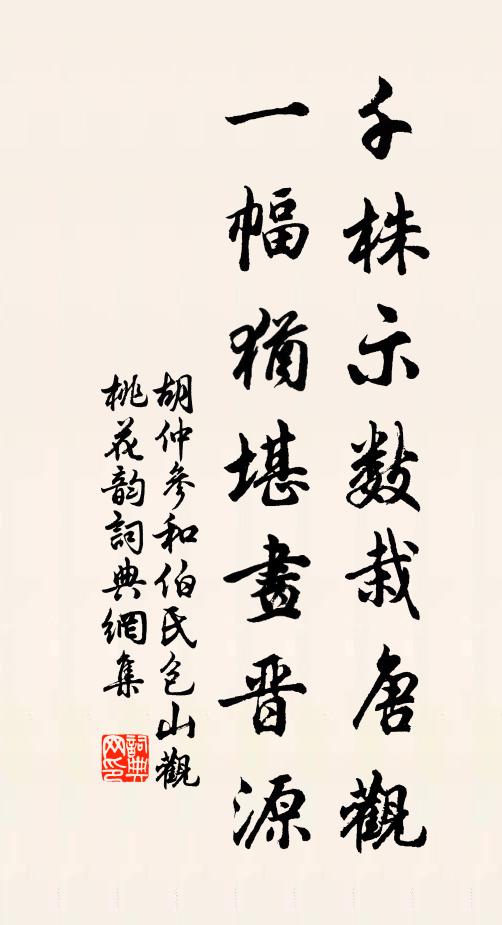 千株示數栽唐觀
一幅猶堪畫晉源
胡仲參和伯氏包山觀
桃花韵詞典網集
詞典網印